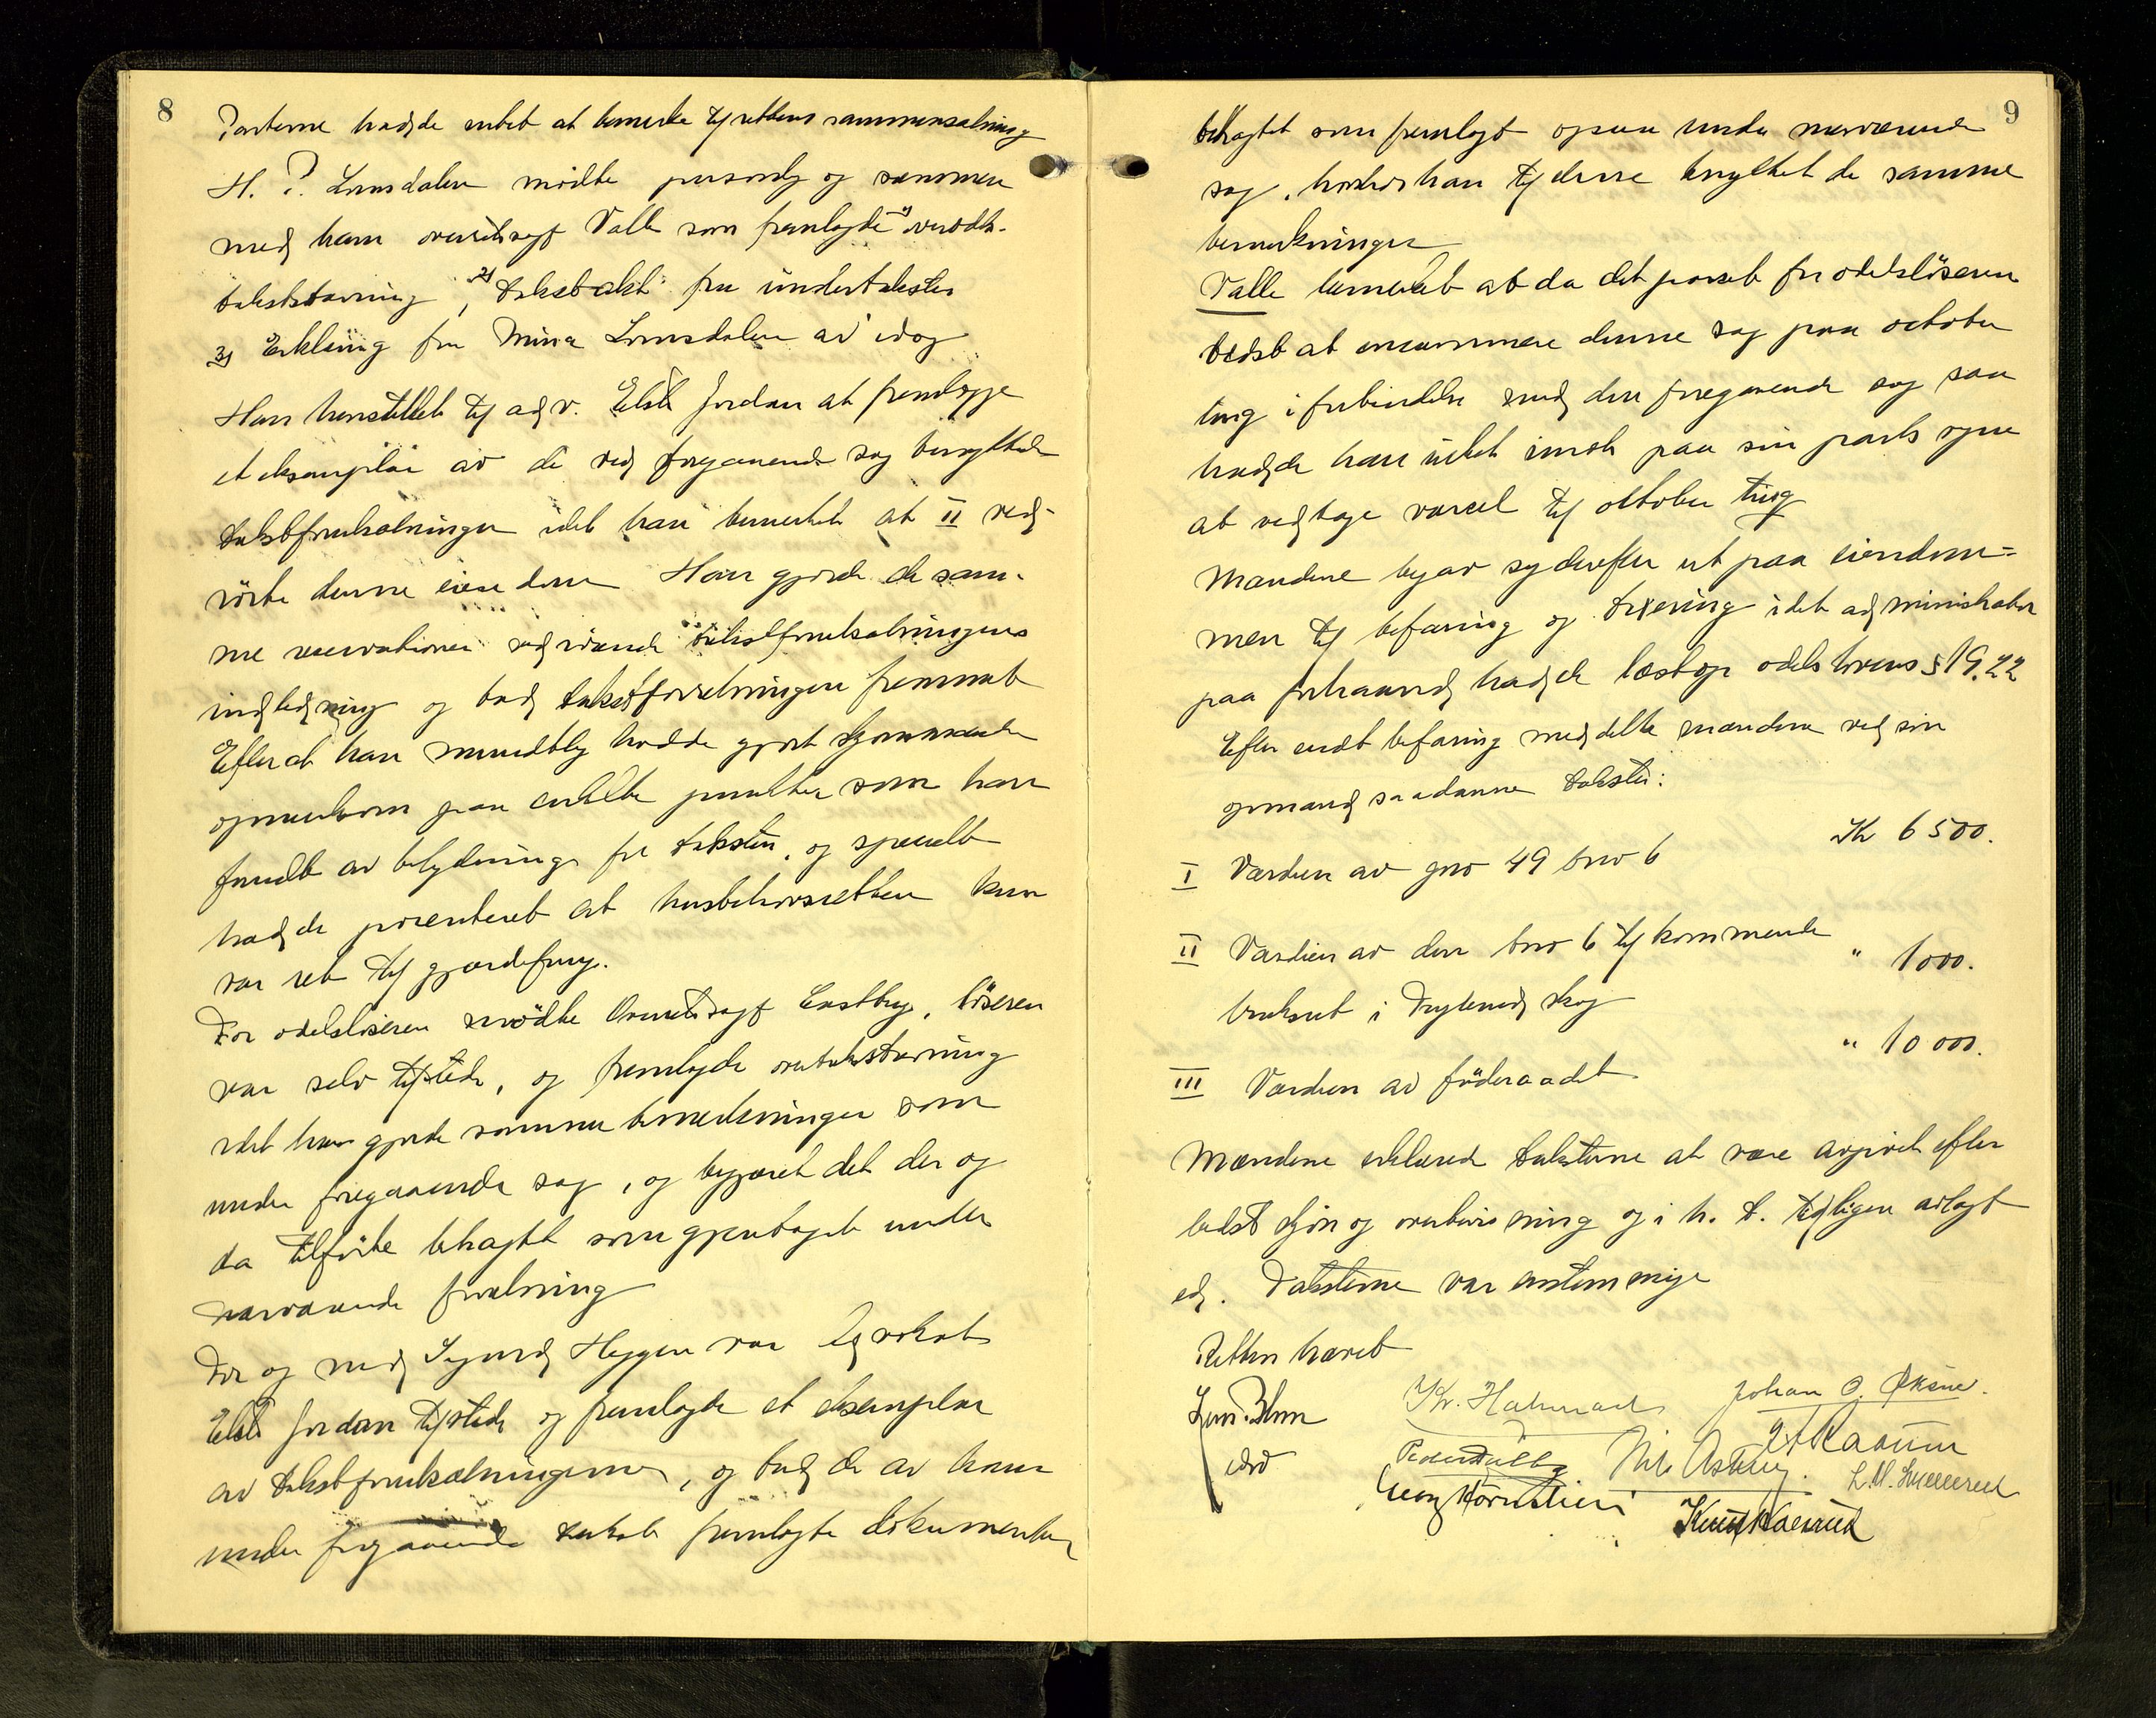 8
Parterne hadde intet at bemerke til rettens sammensætning
H. P. Lomsdalen mødte personlig og sammen
med ham overretssagf Valle som fremlagde 1) overodels-
takststevning, 2) Takstakt fra undertaksten
3) Erklæring fra Mina Lomsdalen av idag
Han henstillet til adv. Elise Jordan at fremlægge
et eksemplar av de ved foregaaende sag benyttede
takstforutsætninger idet han bemerket at II ved-
rörte denne eiendom Han gjorde de sam-
me reservationer vedrörende takstforutsætningens
indledning og bad takstforretningen fremmet
Efterat han mundtlig hadde gjort skjønsmændene
opmerksom paa enkelte punkter som han
fandt av betydning for taksten, og specielt
hadde præsenteret at husbehovsretten kun
var ret til gjærdefang.
For odelsløseren mødte Overretssagf Castberg, löseren
var selv tilstede, og fremlagde overtakststevning
idet han gjorde samme bemerkninger som
under foregaaende sag, og begjæret det der og
da tilførte betragtet som gjentaget under
nærværende forretning
For og med Sigurd Heggen var Advokat
Elise Jordan tilstede og fremlagde et eksemplar
av takstforutsætningerne, og bad de av ham
under foregaaende takst fremlagte dokumenter
9
betragtet som fremlagt ogsaa under nærværende
sag, hvorhos han til denne knyttet de samme
bemerkninger
Valle bemerket at da det passet for odelsløseren
bedst at incaminere denne sag paa october
ting i forbindelse med den foregaaende sag saa
hadde han intet imot paa sin parts vegne
at vedtage varsel til oktober ting
Mændene begav sig derefter ut paa eiendom-
men til befaring og taxering idet administrator
paa forhaand hadde læst op odelslovens § 19. 22
Efter endt befaring meddelte mændene ved sin
opmand saadanne takster:
I Værdien av gno 49 bno 6 Kr 6500.
II Værdien av den bno 6 tilkommende
bruksret i skog " 1000.
III Værdien av föderaadet " 10 000.
Mændene erklærede taksterne at være avgivet efter
bedste skjøn og overbevisning og i h. t. tidligere avlagt
ed. Taksterne var enstemmige
Retten hævet
Kr. Johan O. Øksne.
Peder Nils Raaum
Georg L. M.
Knut